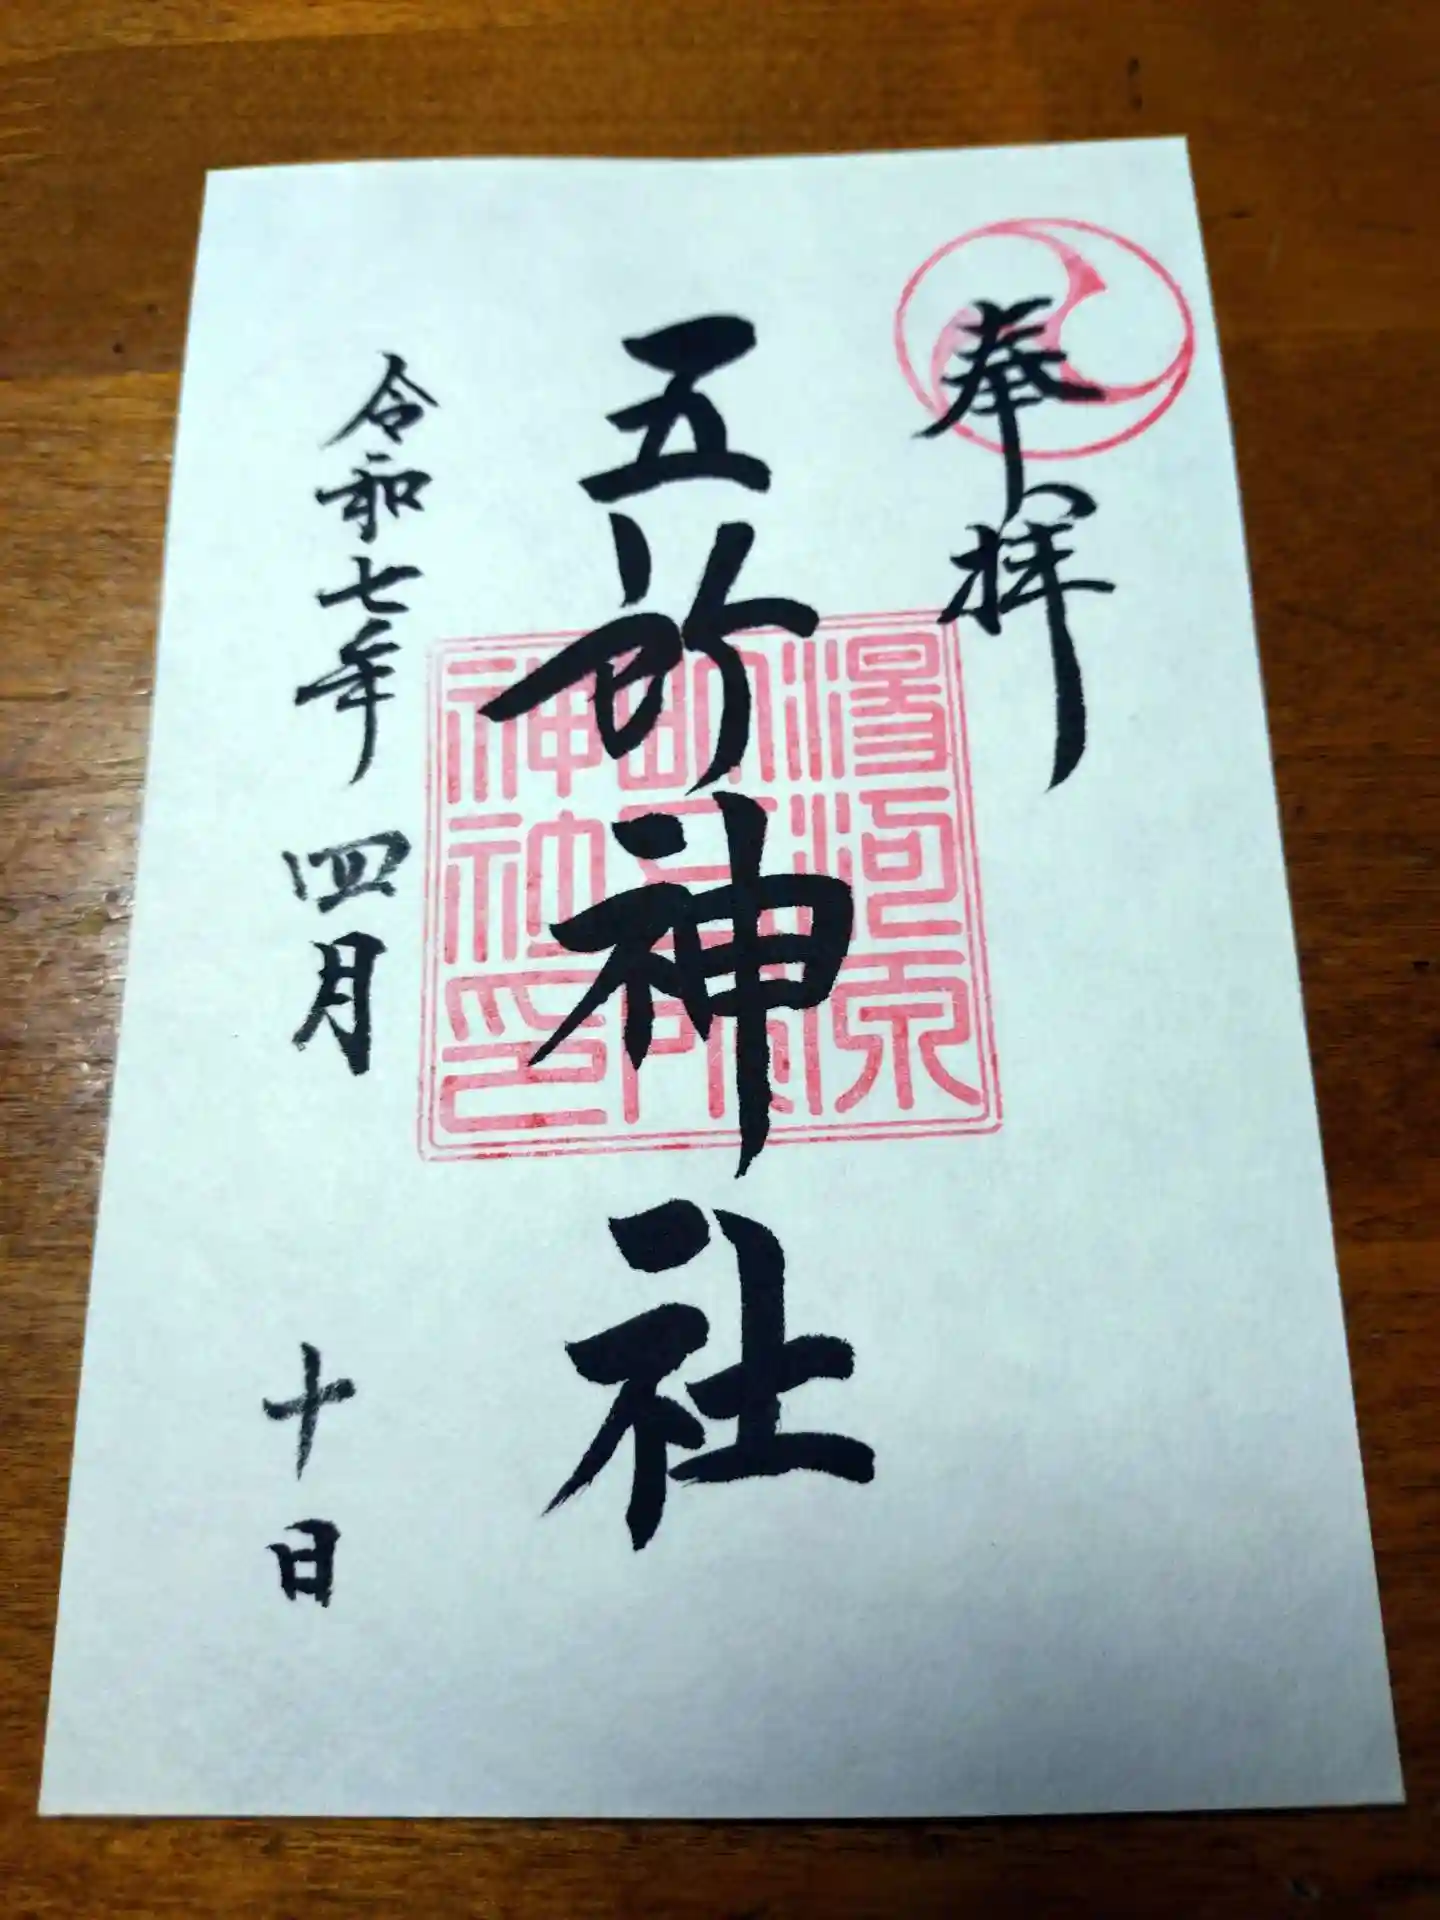 奉拝
五所神社
令和七年 四月 十日
湯河原
神社印